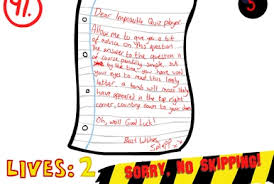 91.
5
Dear Impossible Quiz player,
Allow me to give you a bit
of advice on this question
the answer to the question is
of course painfully simple, but
by the time you have used
your eyes to read this lovely
letter, a bomb will more likely
have appeared in the top right
corner, counting down to your
Oh, well! Good Luck!
Best Wishes,
LIVES: 2
SORRY, NO SKIPPING!